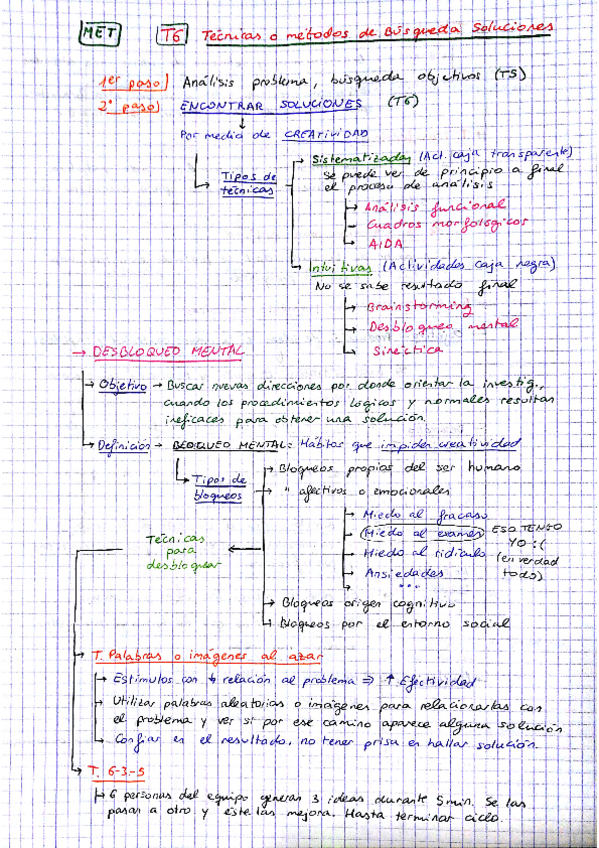 MET T6 Técnicas o métodos de Búsqueda Soluciones
1er paso) Análisis problema, búsqueda objetivos (T5)
2º paso) ENCONTRAR SOLUCIONES (T6)
Por medio de CREATIVIDAD
Tipos de técnicas
Sistematizadas (Act. caja transparente)
Se puede ver de principio a final
el proceso de análisis
Análisis funcional
Cuadros morfológicos
AIDA
Intuitivas (Actividades caja negra)
No se sabe resultado final
Brainstorming
Desbloqueo mental
Sinéctica
→ DESBLOQUEO MENTAL
→ Objetivo → Buscar nuevas direcciones por donde orientar la investig.,
cuando los procedimientos lógicos y normales resultan
ineficaces para obtener una solución.
→ Definición → BLOQUEO MENTAL: Hábitos que impiden creatividad
Tipos de bloqueos
→ Bloqueos propios del ser humano
→ " afectivos o emocionales
→ Miedo al fracaso
→ Miedo al examen ESO TENGO
YO :(
→ Miedo al ridículo (en verdad
→ Ansiedades todo)
→ ...
→ Bloqueos origen cognitivo
→ Bloqueos por el entorno social
Técnicas
para
desbloquear
→ T. Palabras o imágenes al azar
→ Estímulos con ↓ relación al problema ⇒ ↑ Efectividad
→ Utilizar palabras aleatorias o imágenes para relacionarlas con
el problema y ver si por ese camino aparece alguna solución
→ Confiar en el resultado, no tener prisa en hallar solución.
→ T. 6-3-5
→ 6 personas del equipo generan 3 ideas durante 5 min. Se las
pasan a otro y éste las mejora. Hasta terminar ciclo.